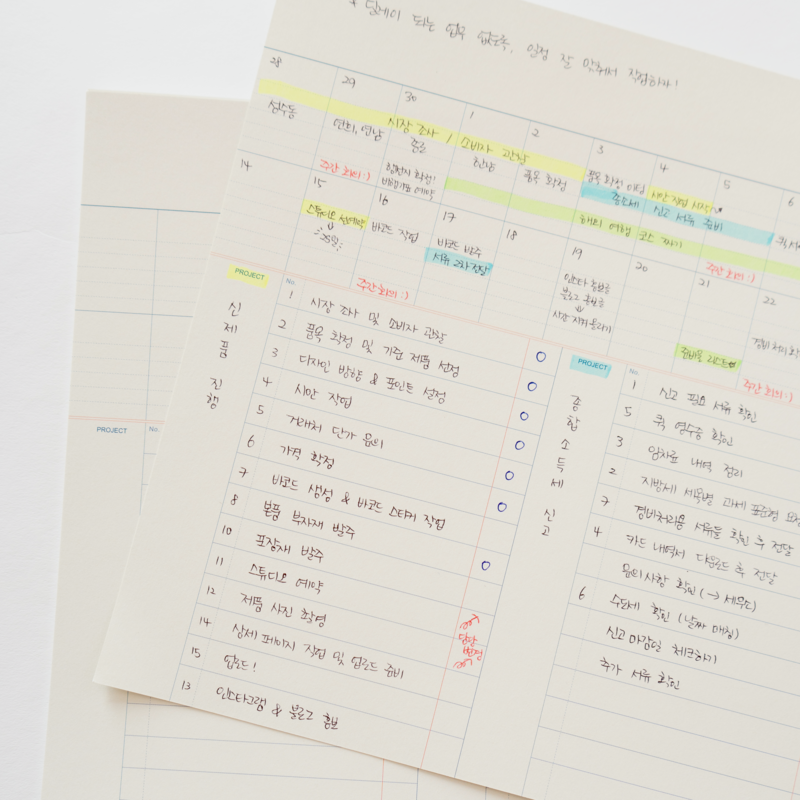 * 딜레이 되는 업무 없도록, 일정 잘 맞춰서 작업하자!
28 29 30 1 2 3 4 5 6
성수동 연희, 연남 종로 한남 품목 확정
시장 조사 / 소비자 관찰
품목 확정 미팅 시안 작업 시작
종소세 신고 서류 준비
주간 회의 :)
해티 여행 코스 짜기
14 15 16 17 18 19 20 21 22
스튜디오 선예약
25일
바코드 작업
바코드 발주
서류 2차 전달
인스타 홍보글
블로그 홍보글
시간 지켜 올리기
주간 회의 :)
준비물 리스트
경비 처리
주간 회의 :)
주간 회의 :)
PROJECT No.
신제품 진행
1 시장 조사 및 소비자 관찰
2 품목 확정 및 기준 제품 선정
3 디자인 방향 & 포인트 설정
4 시안 작업
5 거래처 단가 문의
6 가격 확정
7 바코드 생성 & 바코드 스티커 작업
8 본품 부자재 발주
10 포장재 발주
11 스튜디오 예약
12 제품 사진 촬영
14 상세 페이지 작업 및 업로드 준비
15 업로드!
13 인스타그램 & 블로그 홍보
담당 변경
PROJECT No.
종합소득세 신고
1 신고 필요 서류 확인
5 퀵 영수증 확인
3 임차료 내역 정리
2 지방세 세목별 과세 표준형
7 경비처리용 서류들 확인 후 전달
4 카드 내역서, 다운로드 후 전달
문의사항 확인 (→ 세무도)
6 수도세 확인 (날짜 매칭)
신고 마감일 체크하기
추가 서류 확인
PROJECT No.